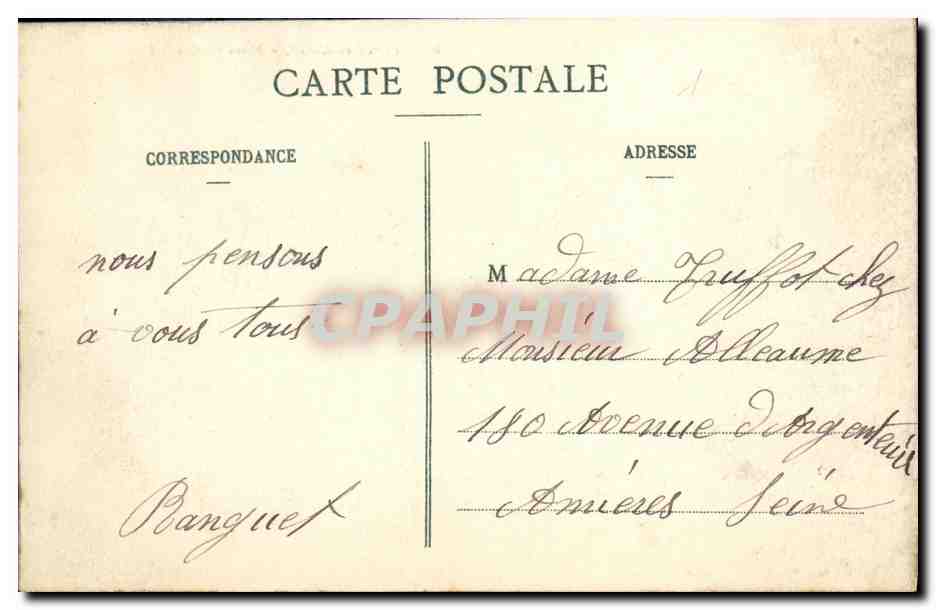 CARTE POSTALE
CORRESPONDANCE
ADRESSE
nous pensons
à vous tous
Ranguet
Madame Truffot chez
Monsieur Alleaume
180 Avenue d'Argenteuil
Asnières Seine
CPAPHIL